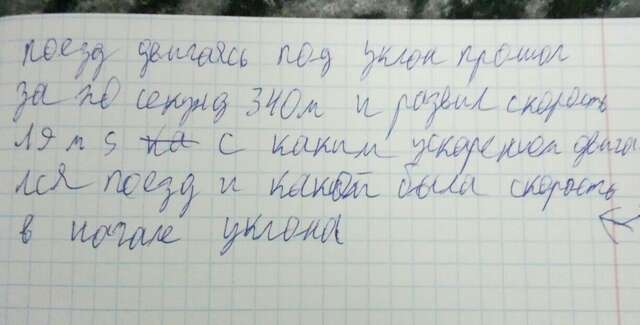 поезд двигаясь под уклон прошол
за 20 секунд 340м и развил скорость
19 m s с каким ускорением двига
лся поезд и какой была скорость
в начале уклона